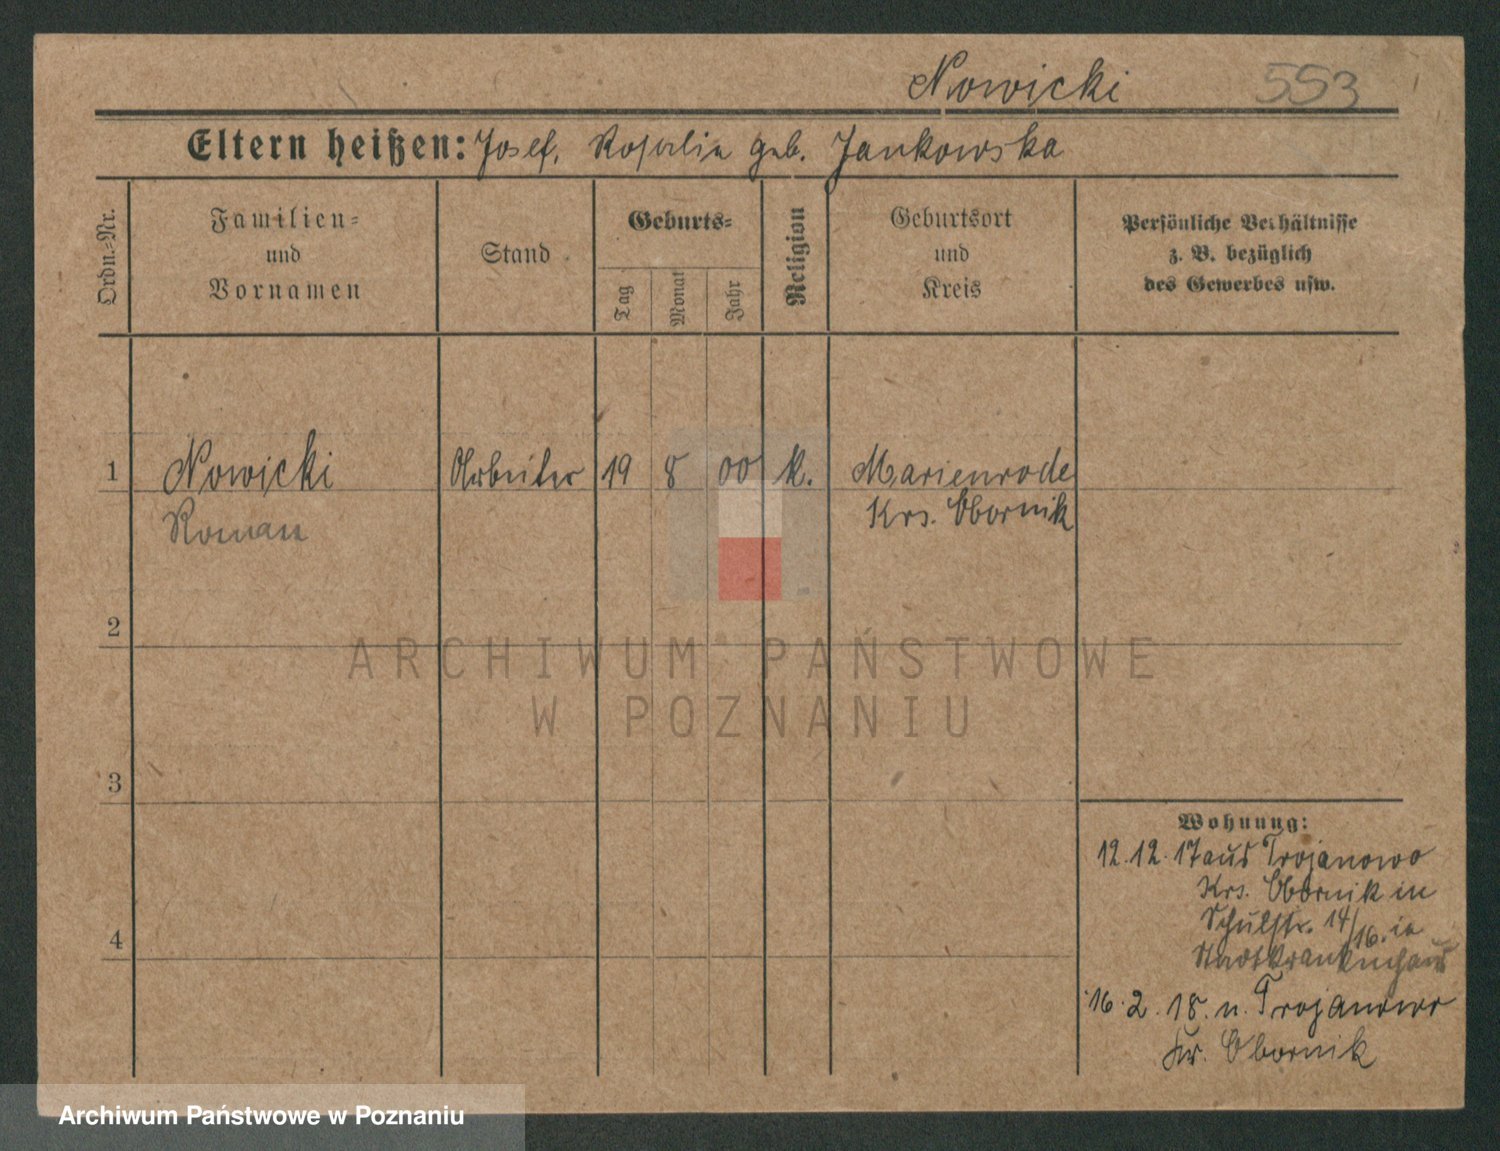 Nowicki 553
Eltern heißen: Josef, Rosalia geb. Jankowska
Ordn.-Nr.
Familien-
und
Vornamen
Stand
Geburts-
Tag
Monat
Jahr
Religion
Geburtsort
und
Kreis
Persönliche Verhältnisse
z. B. bezüglich
des Gewerbes usw.
1 Nowicki Arbeiter 19 8 00 k. Marienrode
Roman Krs. Obornik
2
3
4
Wohnung:
12.12.17 aus Trojanowo
Krs. Obornik in
Schulstr. 14/16. in
Stadtkrankenhaus
16.2.18. n. Trojanowo
Kr. Obornik
ARCHIWUM PAŃSTWOWE
W POZNANIU
Archiwum Państwowe w Poznaniu